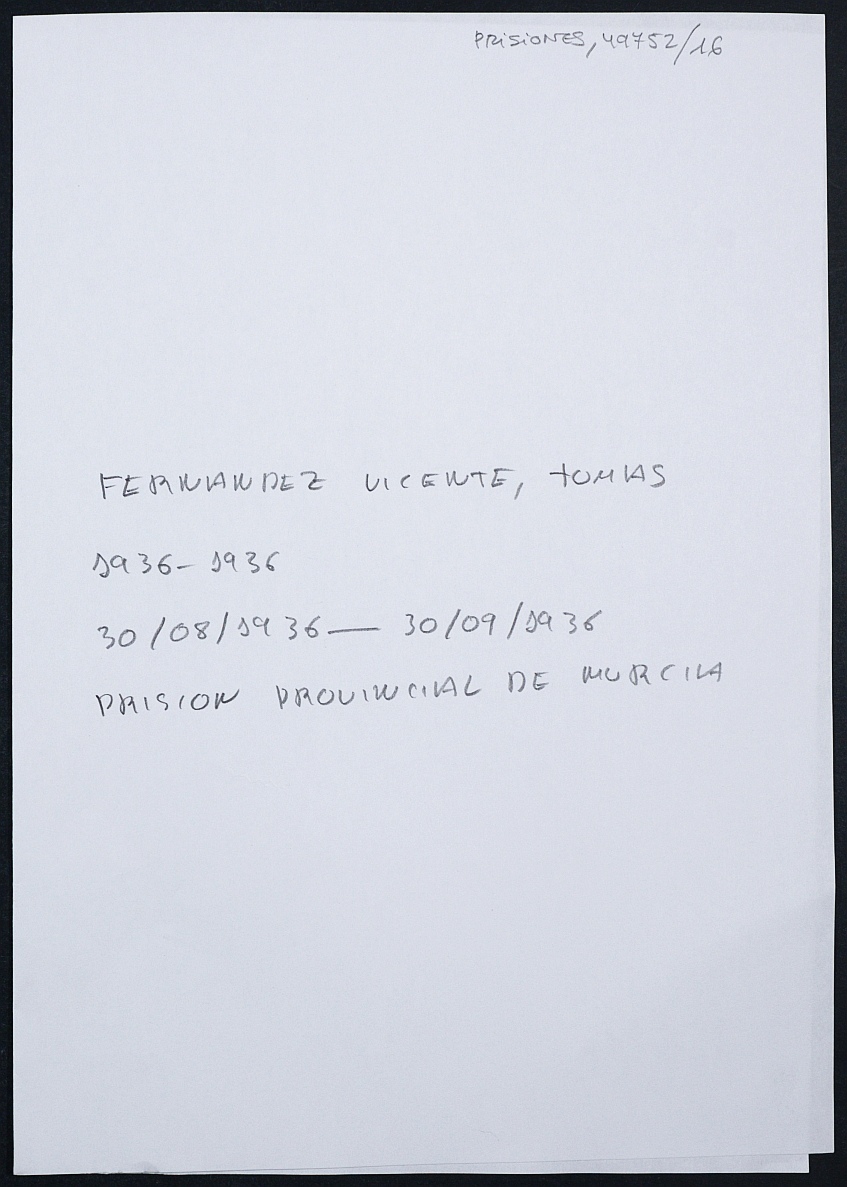 PRISIONES, 49752/16
FERNANDEZ VICENTE, TOMAS
1936-1936
30/08/1936 — 30/09/1936
PRISION PROVINCIAL DE MURCIA